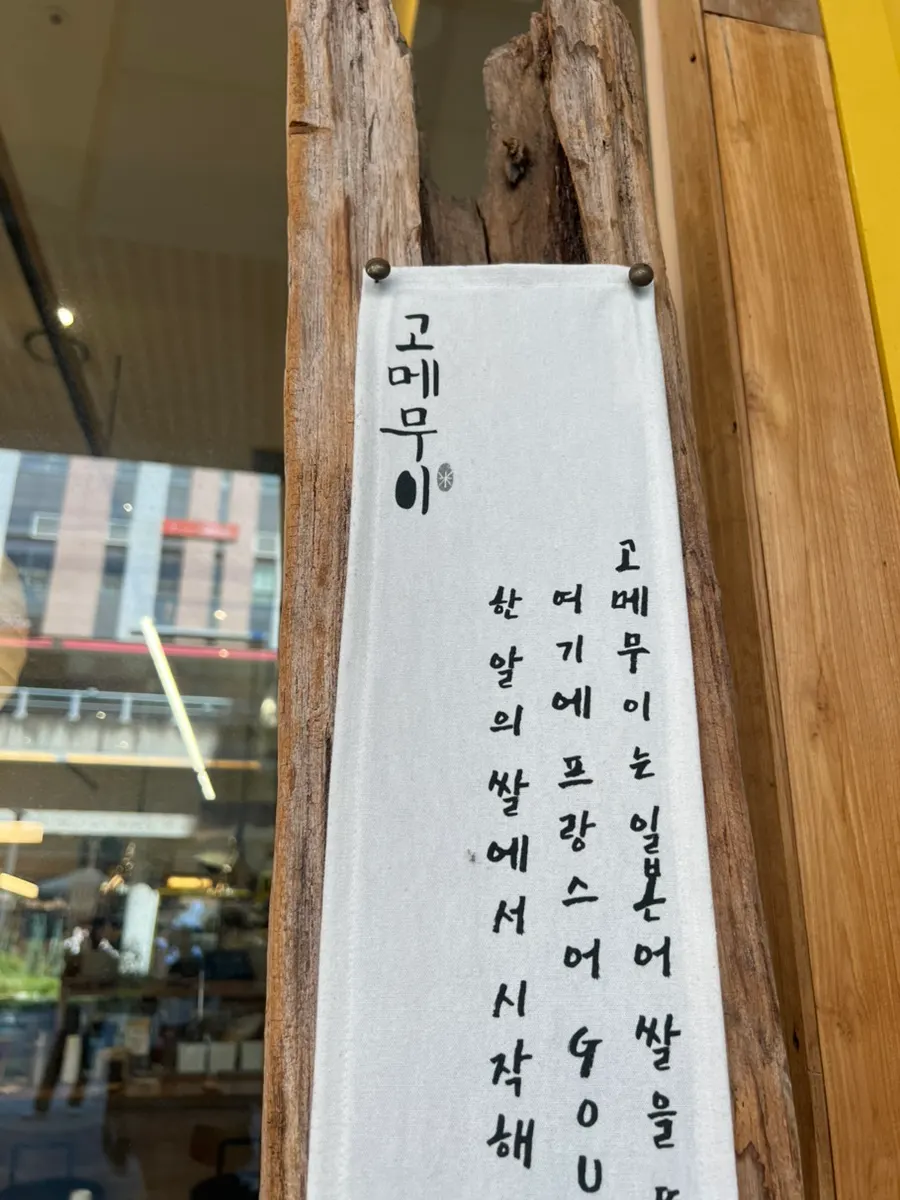 고메무이
고메무이는 일본어 쌀을
여기에 프랑스어 GOU
한 알의 쌀에서 시작해